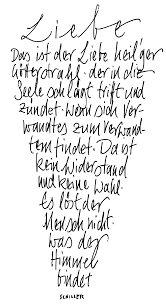 Liebe
Das ist der Liebe heil'ger
Götterstrahl der in die
Seele schlägt trifft und
zündet. Wenn sich Ver-
wandtes zum Verwand-
tem findet. Da ist
kein Widerstand
und keine Wahl.
Es löst der
Mensch nicht.
was der
Himmel
bindet
SCHILLER